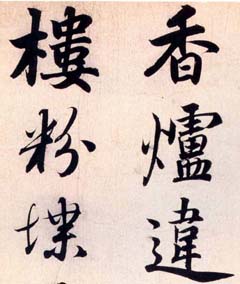 香爐違
樓粉堞